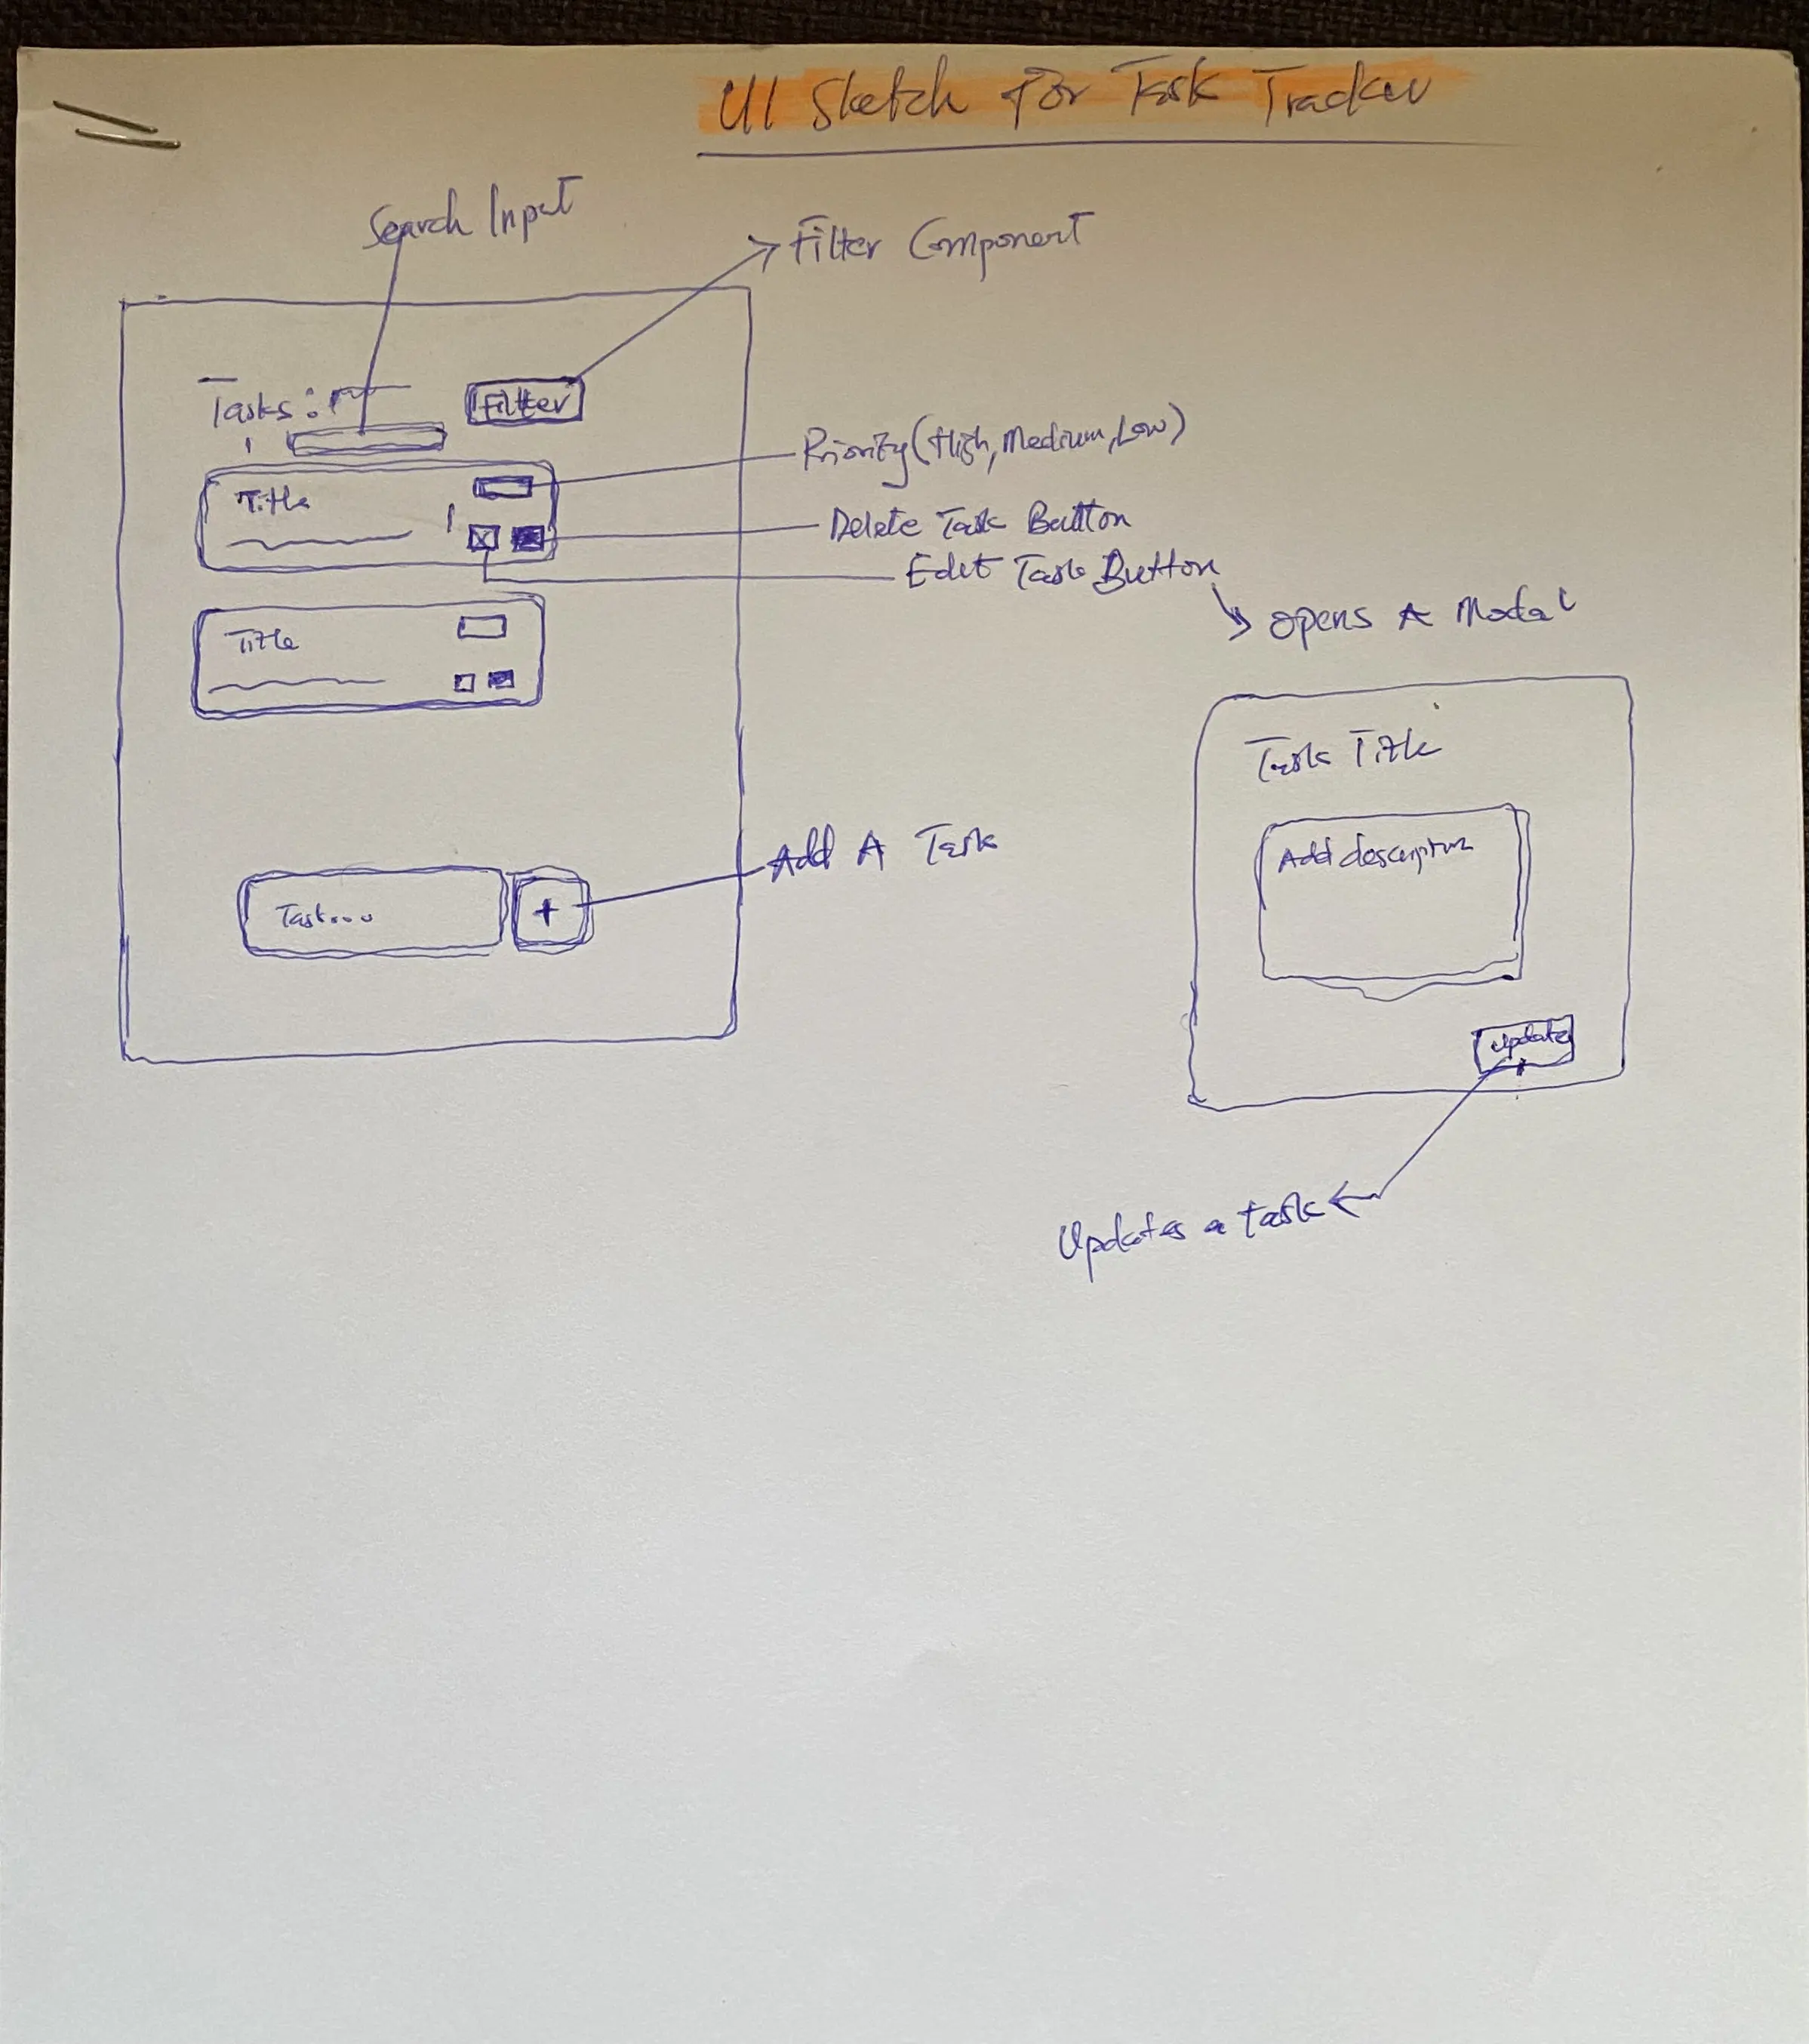 UI Sketch For Task Tracker
Search Input
Filter Component
Tasks:
Filter
Priority (High, Medium, Low)
Title
Delete Task Button
Edit Task Button
opens A Modal
Title
Task Title
Add description
Add A Task
Task...
+
Update
Updates a task